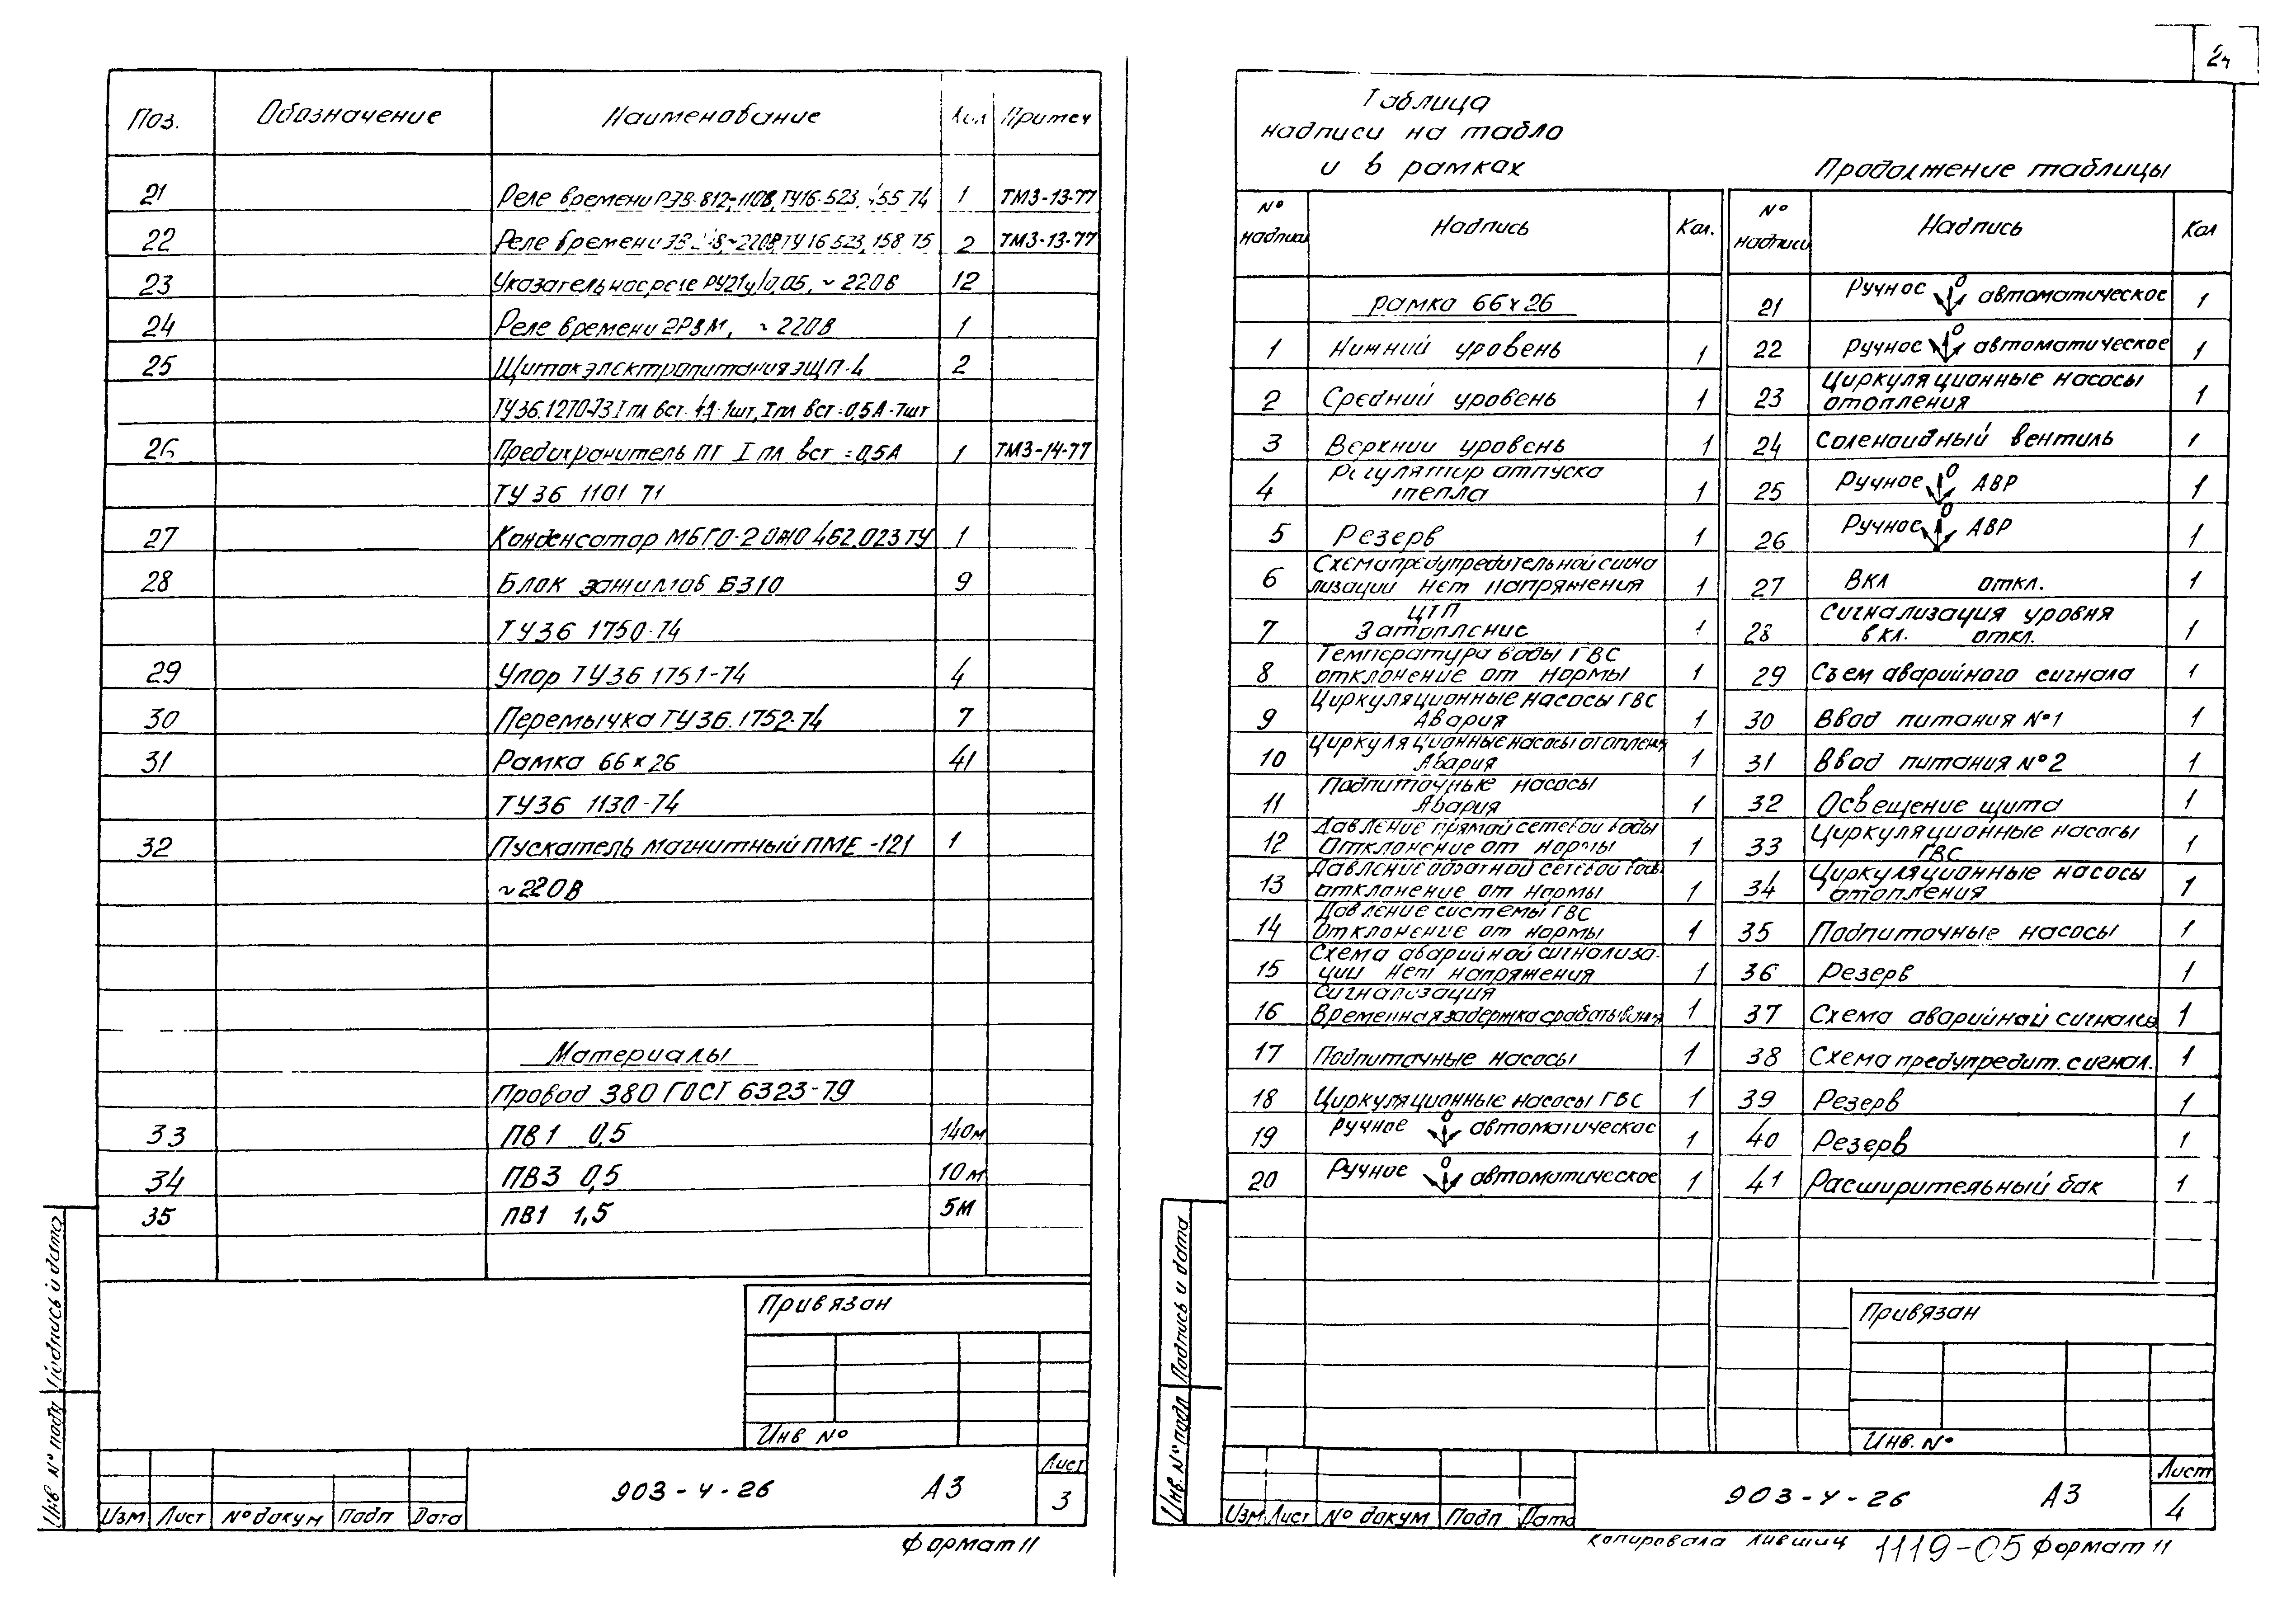 24
Поз. Обозначение Наименование Кол Примеч
21 Реле времени РЭВ-812,-110В, ТУ16-523. 155 74 1 ТМ3-13-77
22 Реле времени ~220В, ТУ 16 523, 158 75 2 ТМ3-13-77
23 Указательное реле РУ21у/0,05, ~ 220В 12
24 Реле времени 2РВМ, ~ 220В 1
25 Щиток электропитания ЭЩП-4 2
ТУ36.1270-73 I пл вст. 4А-1шт, I пл вст=0,5А-7шт
26 Предохранитель ПТ I пл вст =0,5А 1 ТМ3-14-77
ТУ 36 1101 71
27 Конденсатор МБГО-2 ОЖО 462.023 ТУ 1
28 Блок зажимов БЗ10 9
ТУ36 1750-74
29 Упор ТУ36 1751-74 4
30 Перемычка ТУ36.1752-74 7
31 Рамка 66х26 41
ТУ36 1130-74
32 Пускатель магнитный ПМЕ-121 1
~220В
Материалы
Провод 380 ГОСТ 6323-79
33 ПВ1 0,5 140м
34 ПВ3 0,5 10м
35 ПВ1 1,5 5м
Привязан
Инв №
Изм Лист № докум Подп Дата
903-4-26 А3
Лист
3
Формат 11
Инв № подп Подпись и дата
Таблица
надписи на табло
и в рамках
Продолжение таблицы
№ надписи Надпись Кол.
рамка 66х26
1 Нижний уровень 1
2 Средний уровень 1
3 Верхний уровень 1
4 Регулятор отпуска
тепла 1
5 Резерв 1
6 Схема предупредительной сигна
лизации нет напряжения 1
7 ЦТП
Затопление 1
8 Температура воды ГВС
отклонение от нормы 1
9 Циркуляционные насосы ГВС
Авария 1
10 Циркуляционные насосы отопления
Авария 1
11 Подпиточные насосы
Авария 1
12 Давление прямой сетевой воды
Отклонение от нормы 1
13 Давление обратной сетевой воды
отклонение от нормы 1
14 Давление системы ГВС
Отклонение от нормы 1
15 Схема аварийной сигнализа-
ции нет напряжения 1
16 Сигнализация
Временная задержка срабатывания 1
17 Подпиточные насосы 1
18 Циркуляционные насосы ГВС 1
19 Ручное 0 автоматическое 1
20 Ручное 0 автоматическое 1
№ надписи Надпись Кол
21 Ручное 0 автоматическое 1
22 Ручное 0 автоматическое 1
23 Циркуляционные насосы
отопления 1
24 Соленоидный вентиль 1
25 Ручное 0 АВР 1
26 Ручное 0 АВР 1
27 Вкл откл. 1
28 Сигнализация уровня
вкл. откл. 1
29 Съем аварийного сигнала 1
30 Ввод питания №1 1
31 Ввод питания №2 1
32 Освещение щита 1
33 Циркуляционные насосы
ГВС 1
34 Циркуляционные насосы
отопления 1
35 Подпиточные насосы 1
36 Резерв 1
37 Схема аварийной сигнализ 1
38 Схема предупредит. сигнал. 1
39 Резерв 1
40 Резерв 1
41 Расширительный бак 1
Привязан
Инв. №
Изм Лист № докум Подп Дата
903-4-26 А3
Лист
4
копировала Лившиц 1119-05 Формат 11
Инв. № подп Подпись и дата